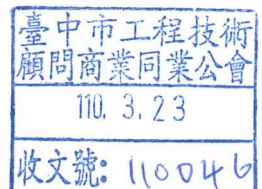 臺中市工程技術
顧問商業同業公會
110. 3. 23
收文號: 110046